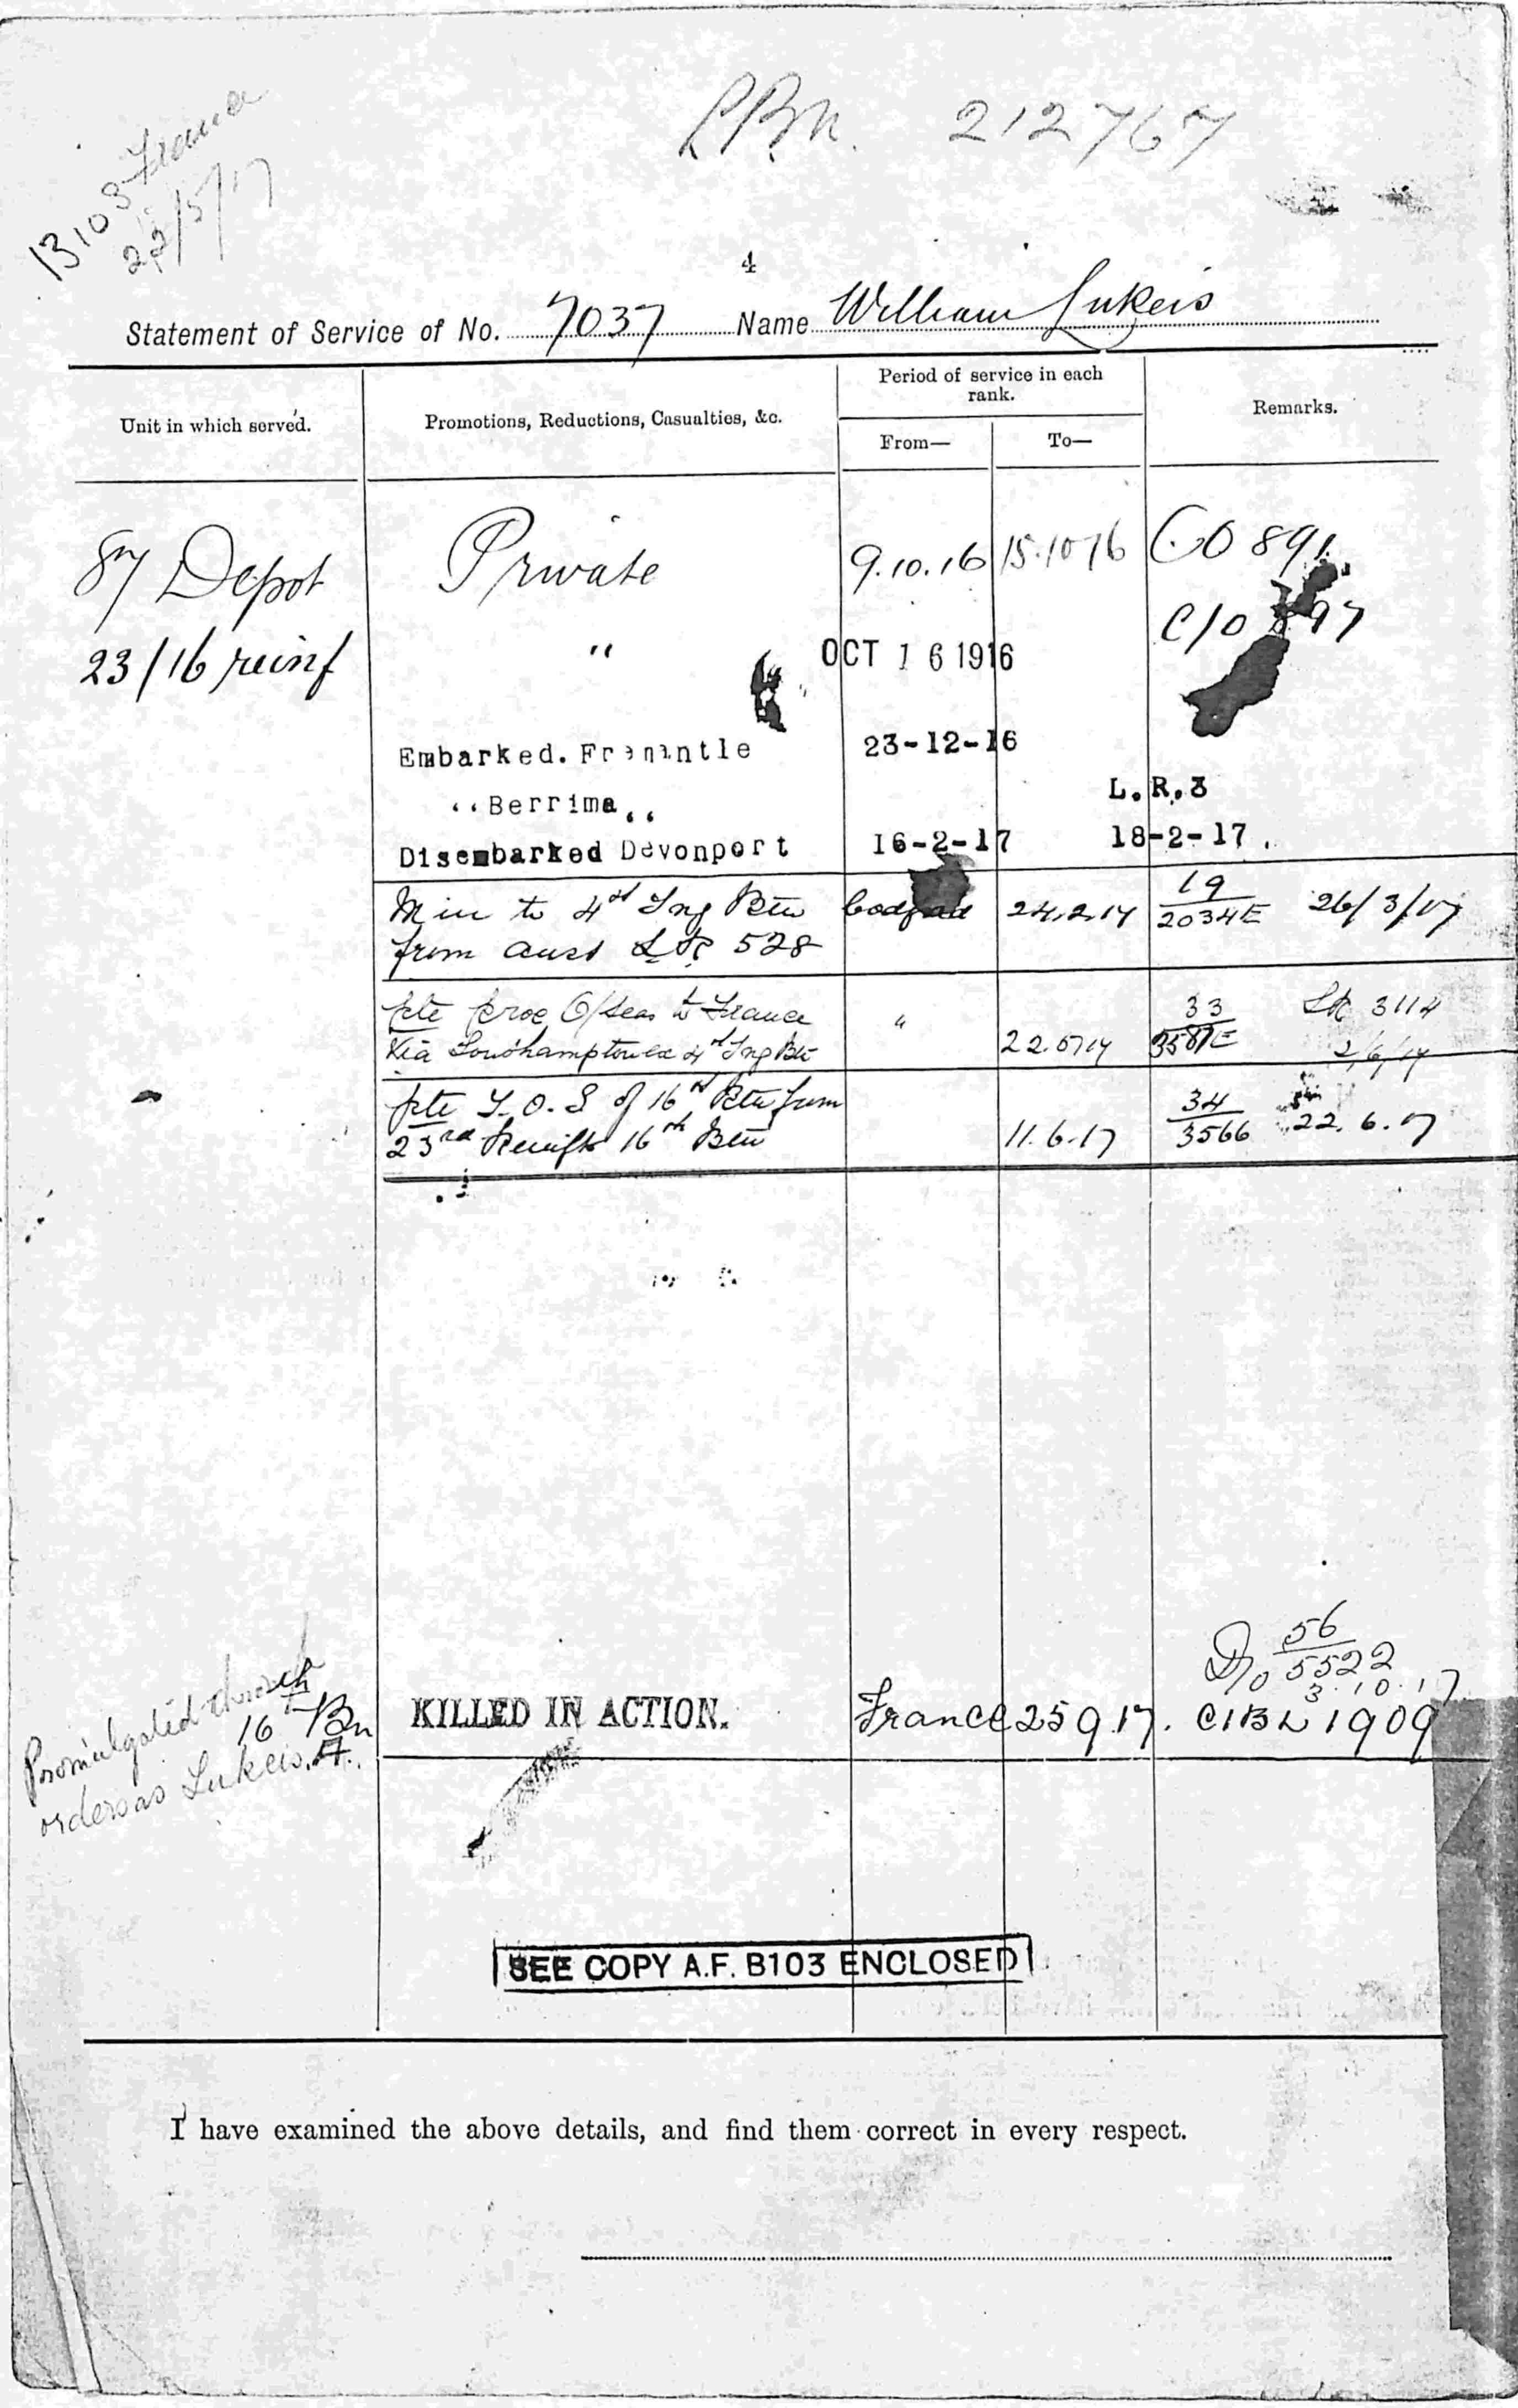 B103 France
22/5/17
212767
4
Statement of Service of No. 7037 Name William Lukeis
Unit in which served.
Promotions, Reductions, Casualties, &c.
Period of service in each rank.
From—
To—
Remarks.
Depot Private 9.10.16 15.10 16 CO 891
23/16 reinf " OCT 16 1916 C/O 97
Embarked. Fremantle 23-12-16
"Berrima" L.R.3
Disembarked Devonport 16-2-17 18-2-17.
M in to 4th Tng Btn Codford 24.2.17 19/2034E 26/3/17
from Aust LR 528
pte proc O/seas to France " 33 LR 3114
Via Southampton ex 4th Tng Btn 22.5.17 3587E 2/6/17
pte T.O.S of 16th Btn from 34
23rd Reinfts 16th Btn 11.6.17 3566 22.6.17
D/o 56/5522
3.10.17
KILLED IN ACTION. France 25 9.17. C1BL 1909
Promulgated through
16th Bn
orders as Lukeis. A.
SEE COPY A.F. B103 ENCLOSED
I have examined the above details, and find them correct in every respect.